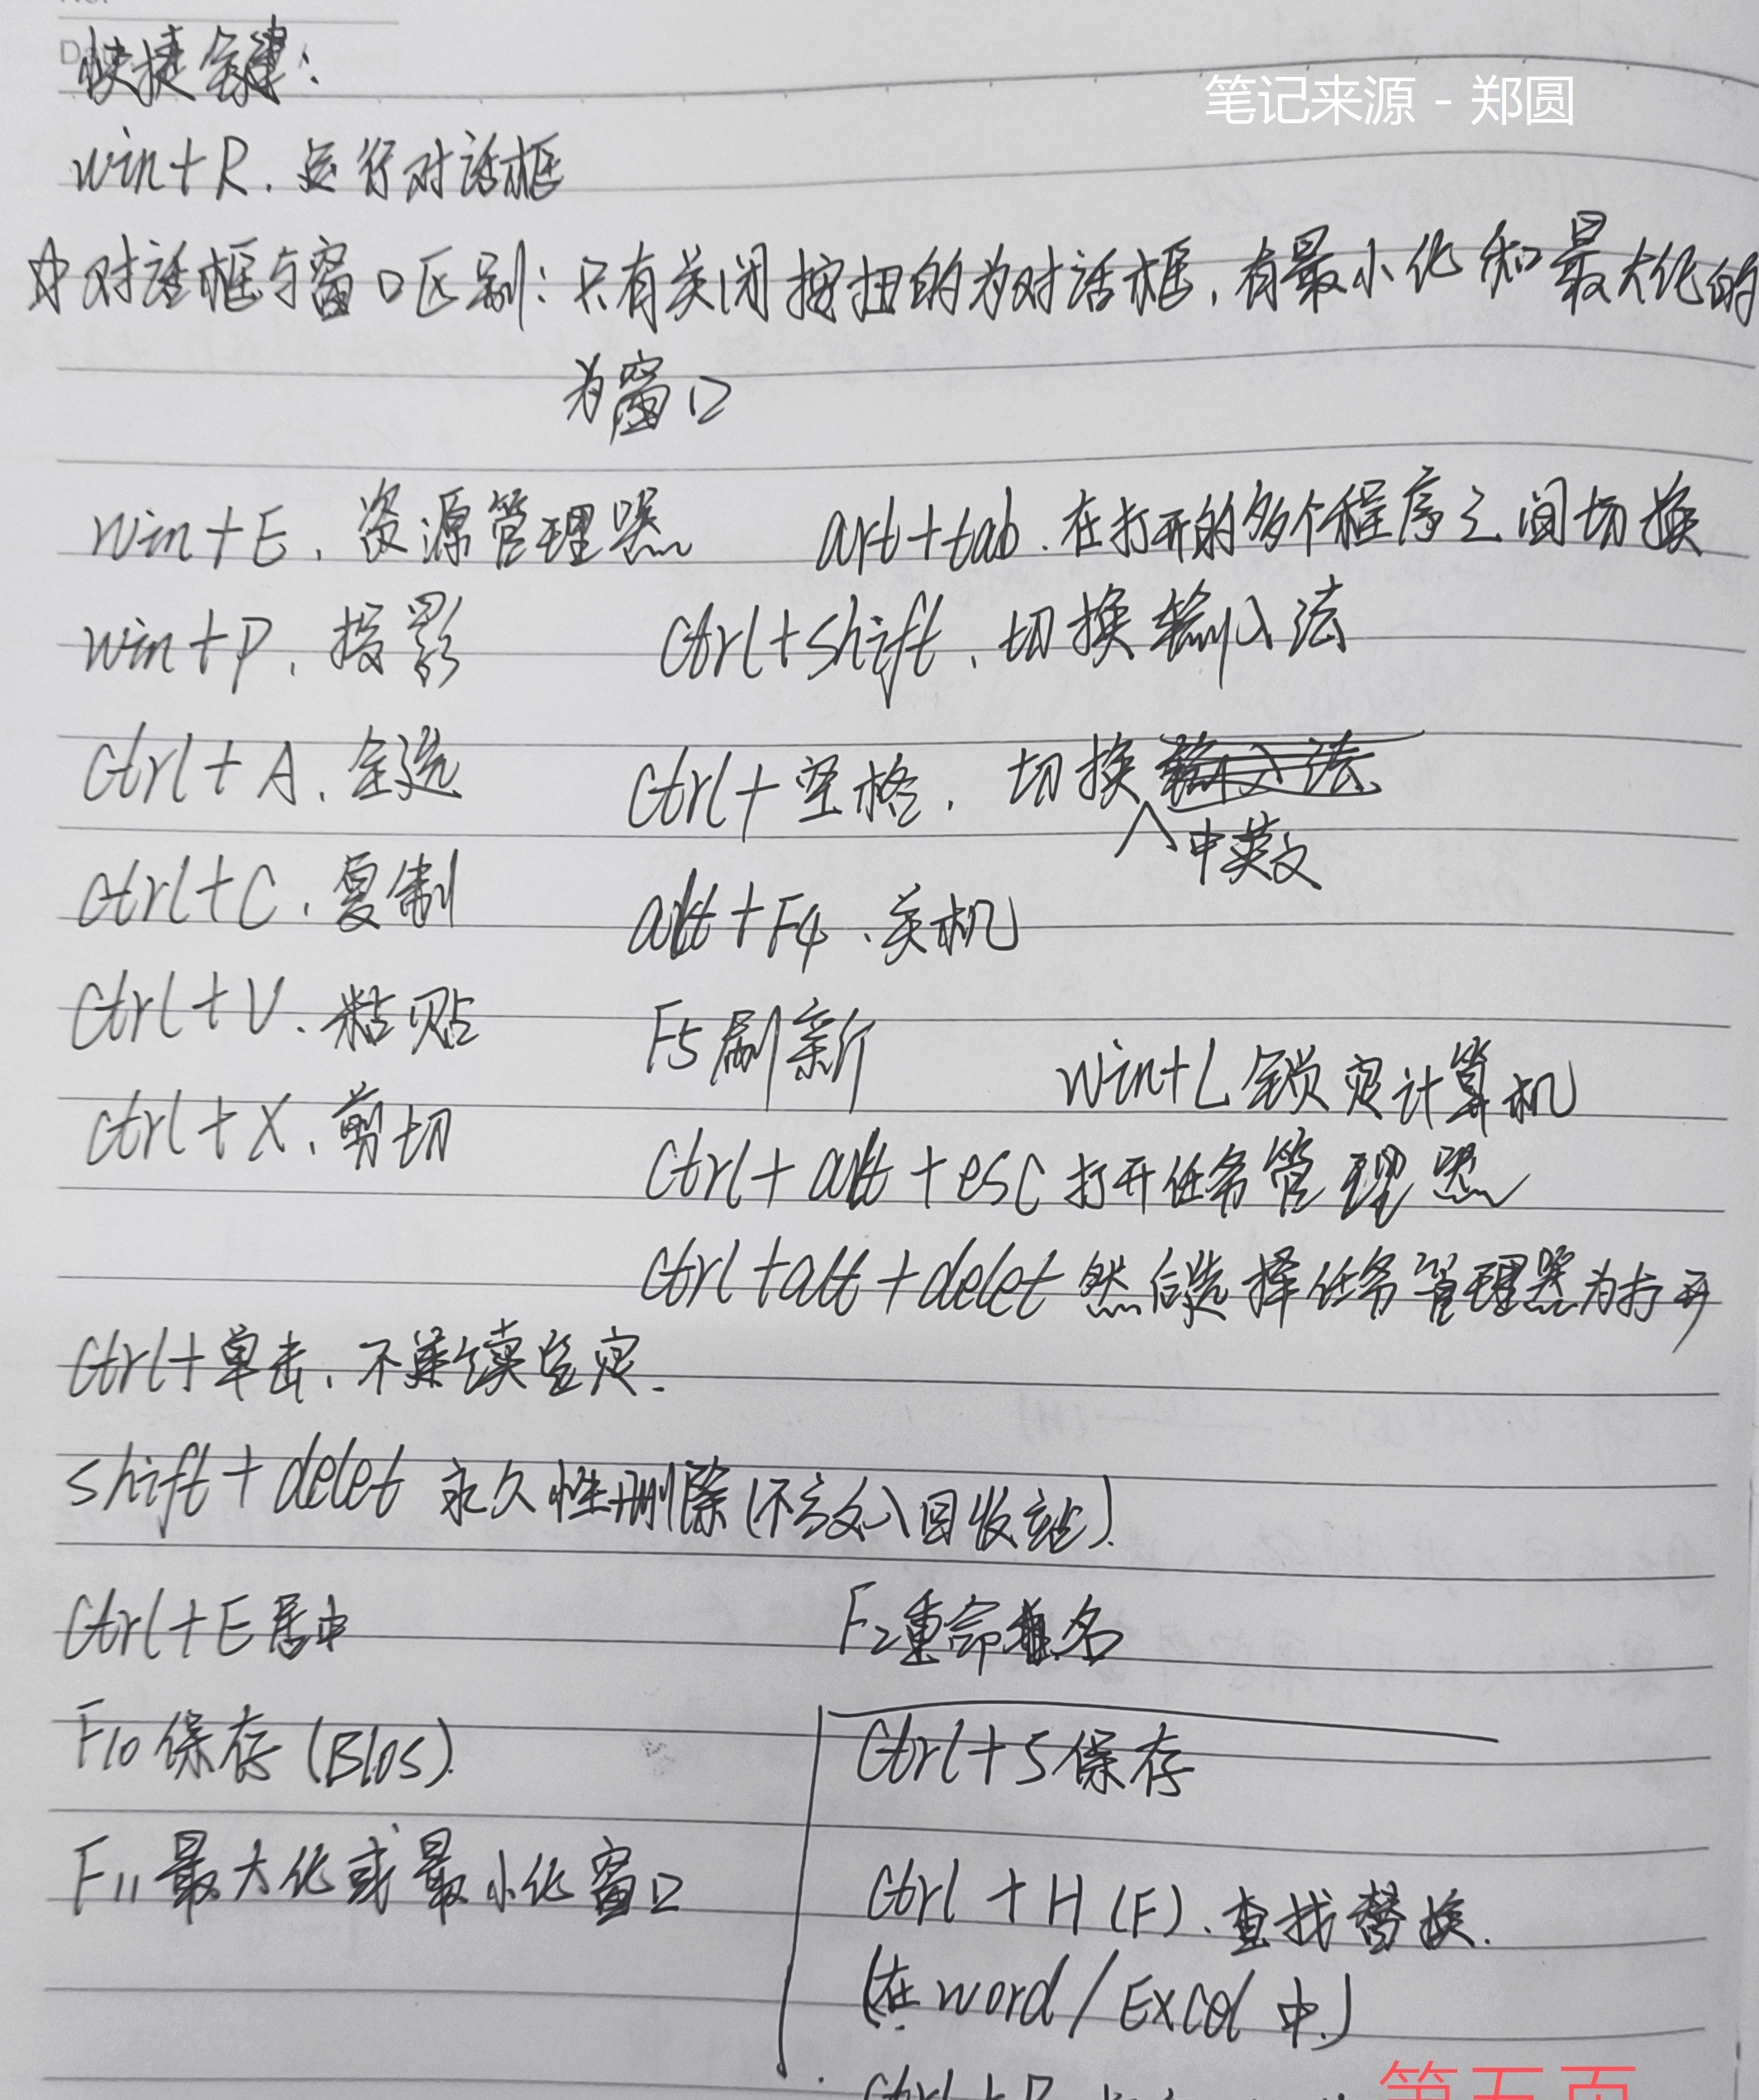 快捷键:
笔记来源 - 郑圆
win+R、运行对话框
对话框与窗口区别:只有关闭按扭的为对话框,有最小化和最大化的
为窗口
win+E、资源管理器
art+tab、在打开的多个程序之间切换
win+P、投影
Ctrl+shift、切换输入法
Ctrl+A、全选
Ctrl+空格、切换输入法
中英文
Ctrl+C、复制
alt+F4、关机
Ctrl+V、粘贴
F5刷新
win+L锁定计算机
Ctrl+X、剪切
Ctrl+alt+esc打开任务管理器
Ctrl+alt+delet然后选择任务管理器为打开
Ctrl+单击、不连续选定.
shift+delet 永久性删除(不放入回收站).
Ctrl+E居中
F2重命名
F10保存(BIos).
Ctrl+S保存
F11最大化或最小化窗口
Ctrl+H(F)、查找替换.
(在word/Excel中.)
第五页